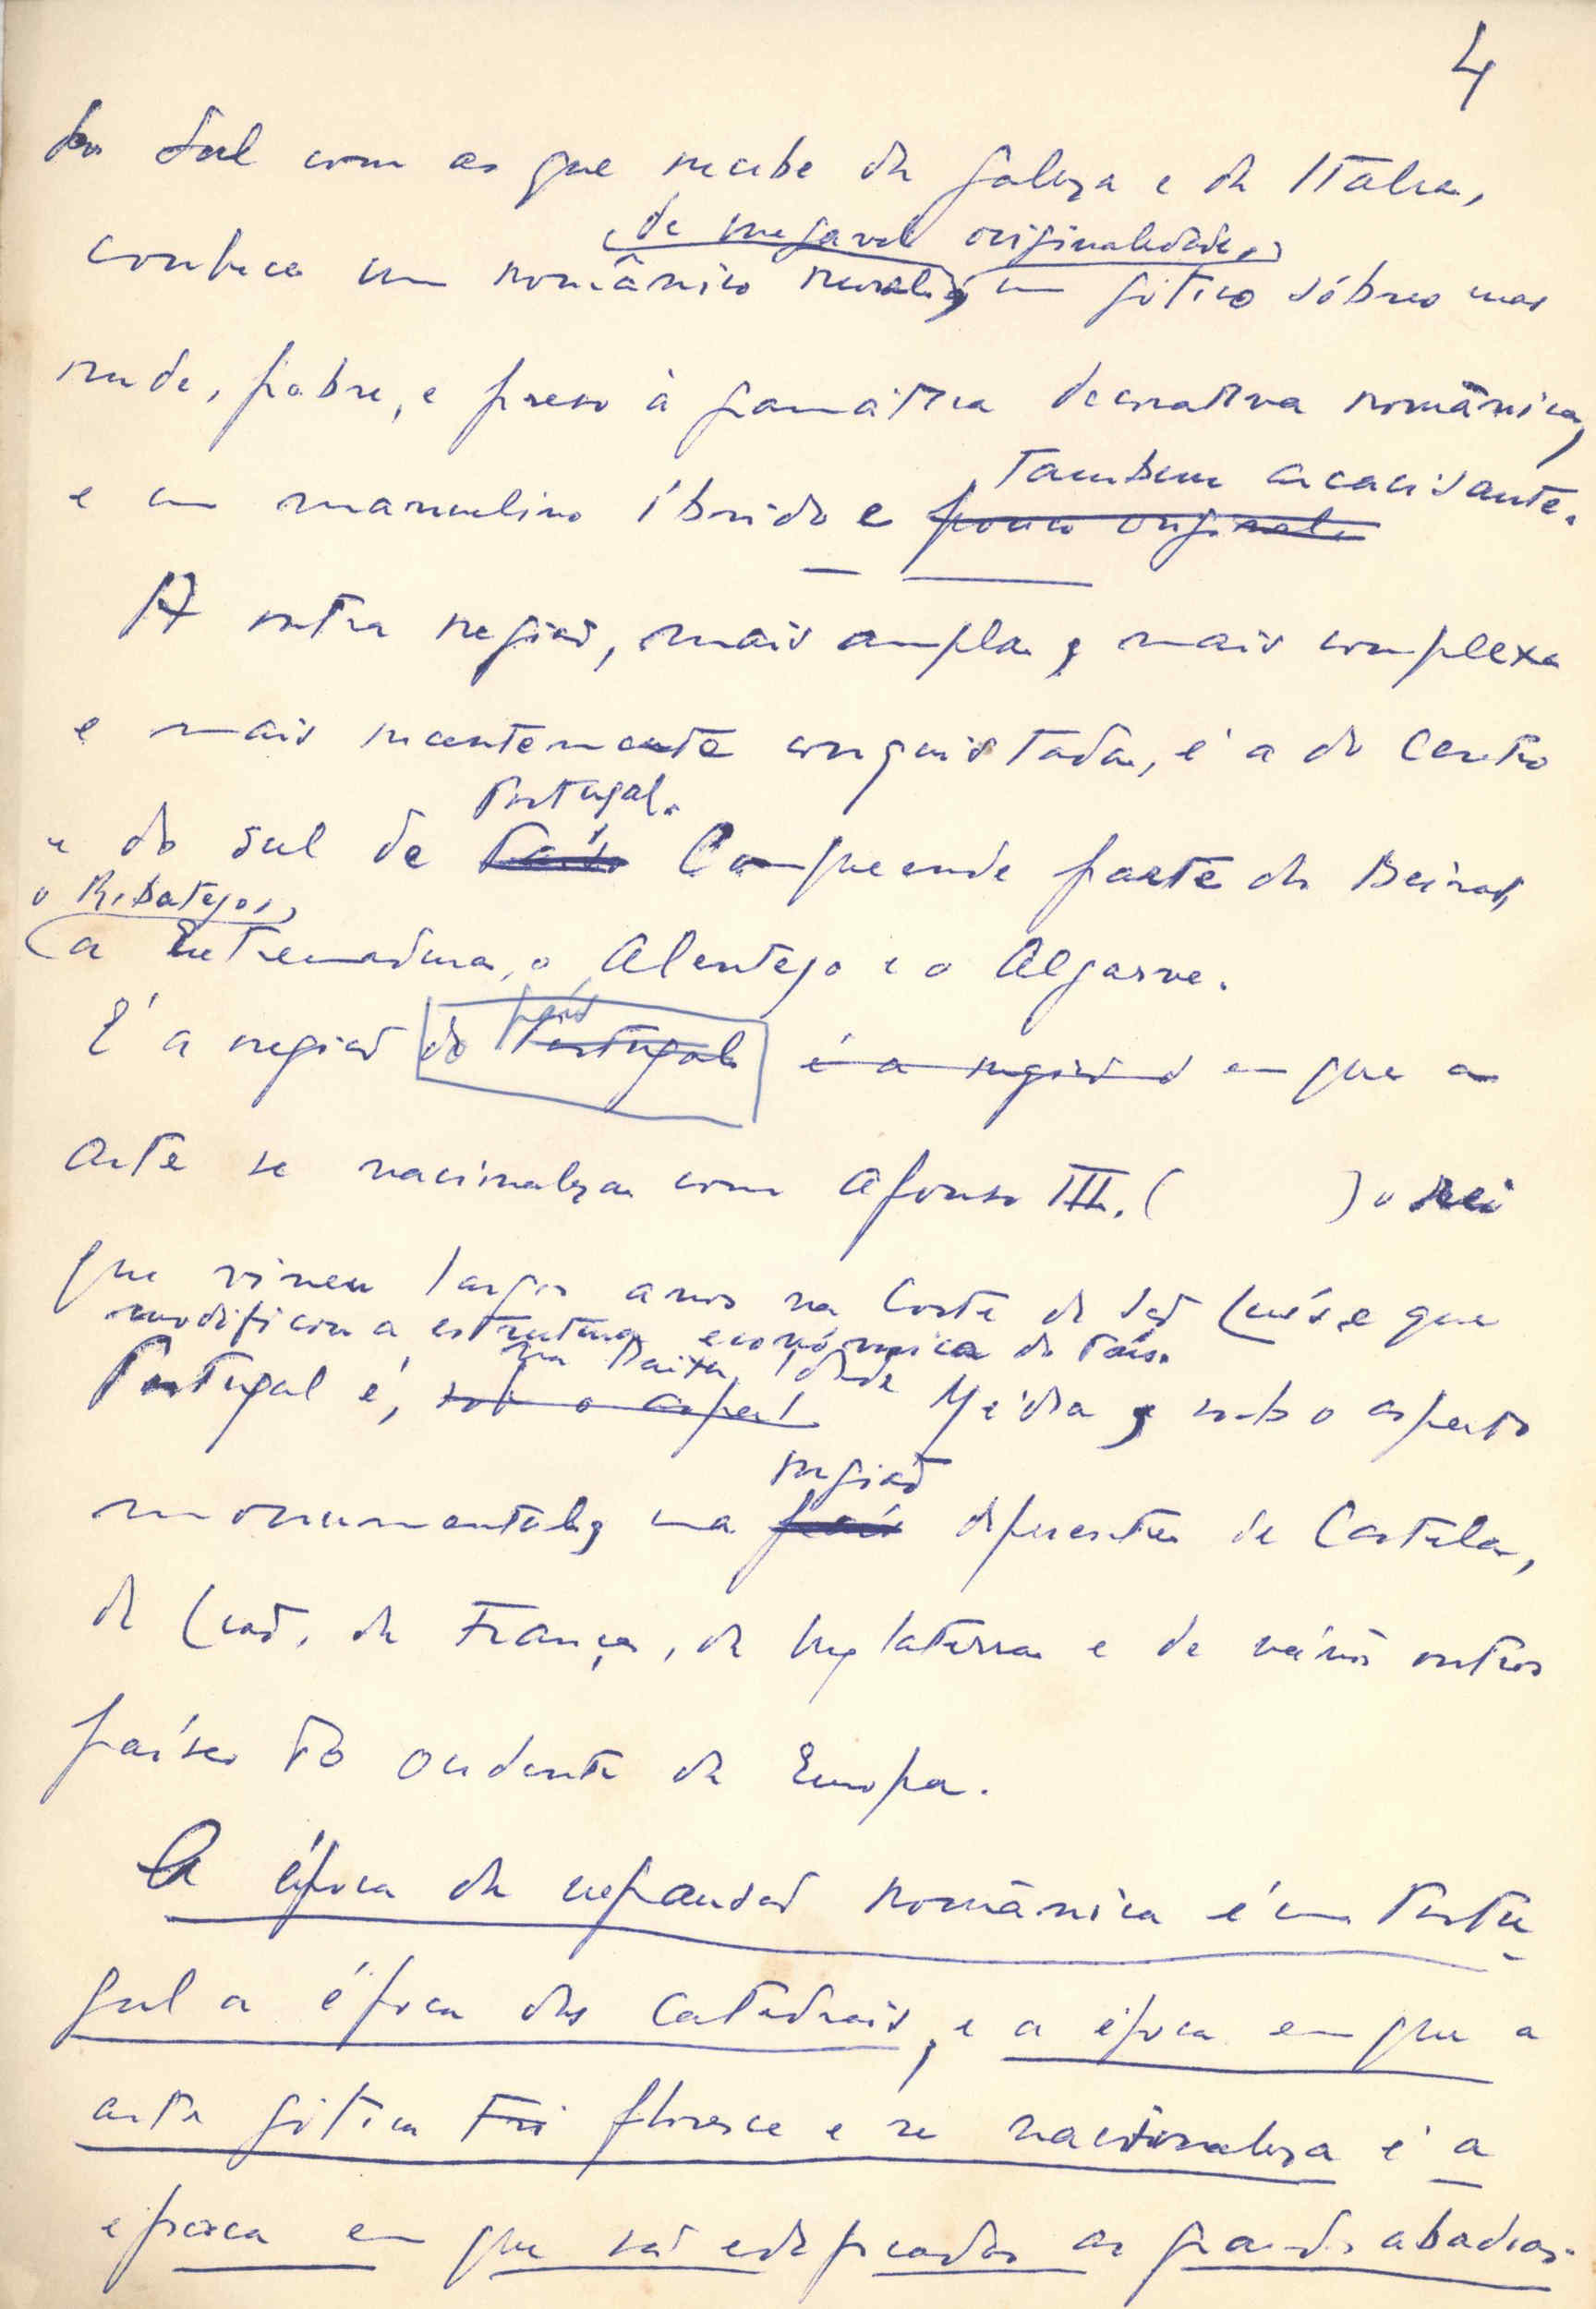 4
do Sul com as que recebe da Galiza e da Italia,
de inegavel originalidade,
conhece um românico rural, um gótico sóbrio mas
rude, pobre, e preso à gramática decorativa românica,
tambem arcaisante.
e um manuelino íbrido e pouco original
A outra região, mais ampla, mais complexa
e mais recentemente conquistada, é a do Centro
Portugal.
e do sul de País Compreende parte da Beira,
o Ribatejo,
a Extremadura, o Alentejo e o Algarve.
país
É a região do Portugal é a região em que a
arte se nacionaliza com Afonso III. ( ) o rei
que viveu largos anos na Corte de São Luís, e que
modificou a estrutura económica do País.
na Baixa Idade
Portugal é, sob o aspect Média, sob o aspecto
região
monumental, uma país diferente de Castela,
de Leão, da França, da Inglaterra e de vários outros
países do ocidente da Europa.
A época da expansão românica é em Portu-
gal a época das Catedrais, e a época em que a
arte gótica foi floresce e se nacionaliza é a
época em que são edificadas as grandes abadias.